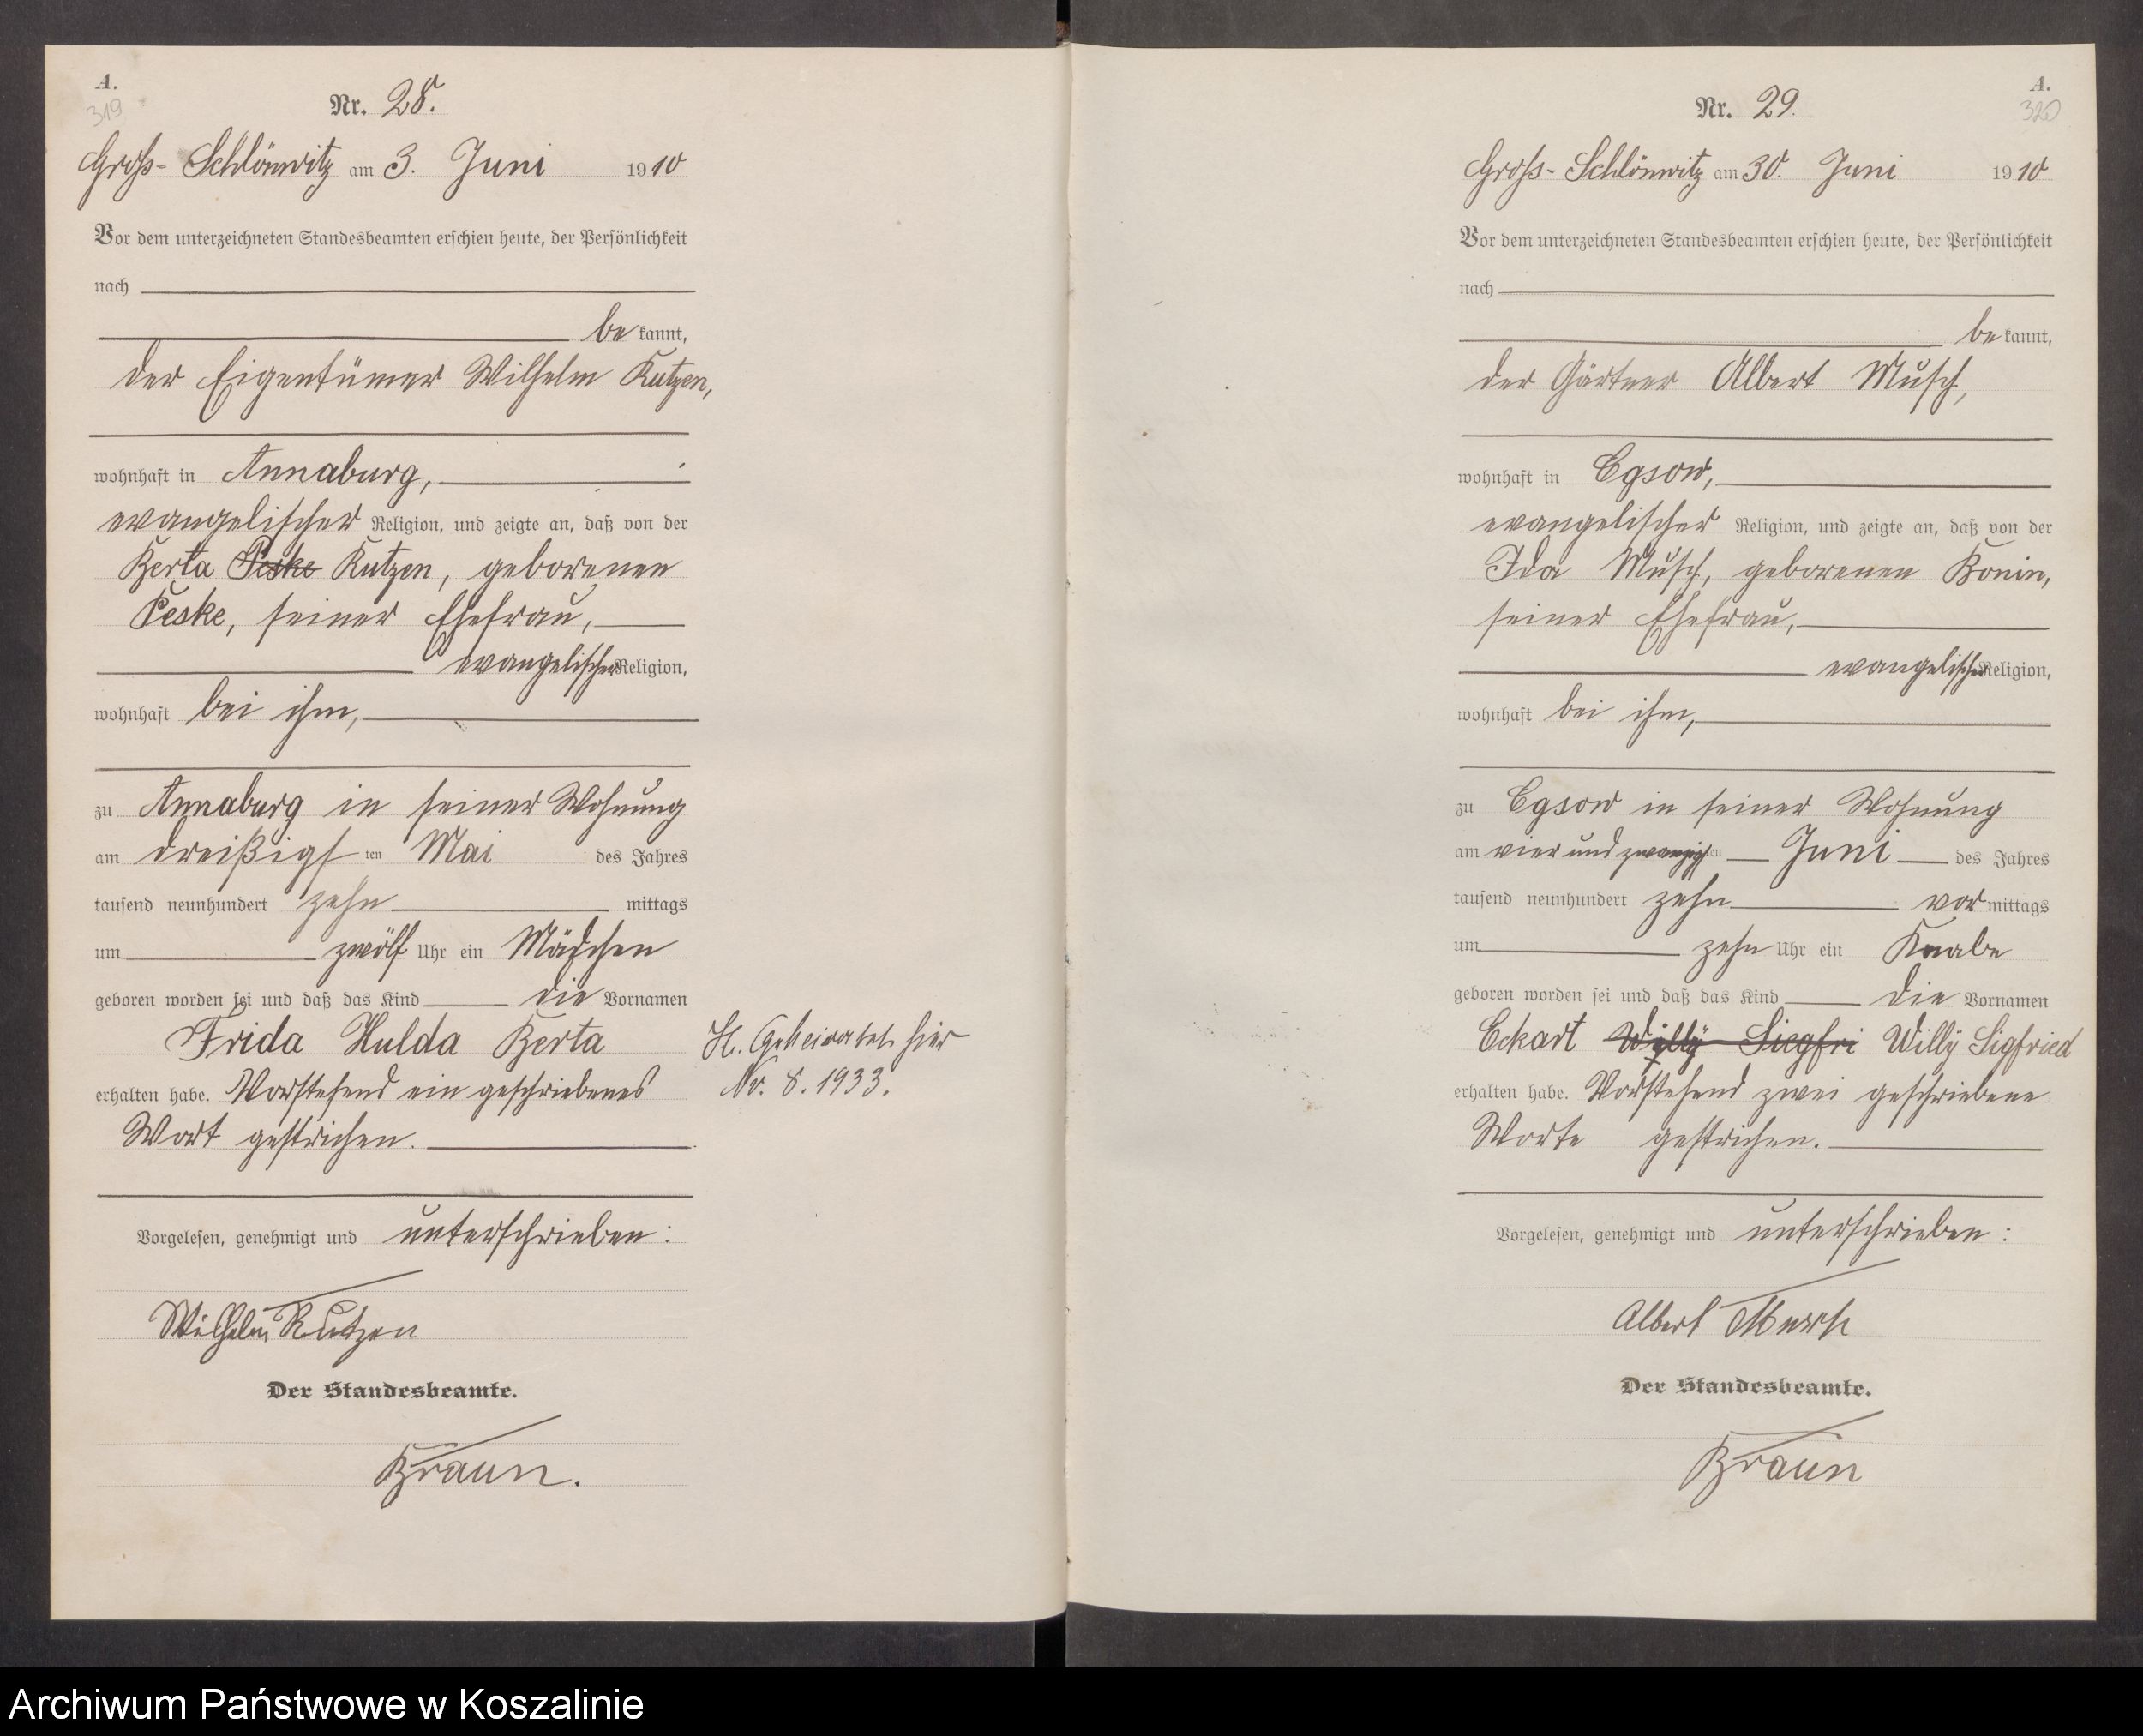 A.
319
Nr. 28.
Groß-Schlönwitz am 3. Juni 1910
Vor dem unterzeichneten Standesbeamten erschien heute, der Persönlichkeit
nach
bekannt,
der Eigentümer Wilhelm Kutzen,
wohnhaft in Annaburg,
evangelischer Religion, und zeigte an, daß von der
Berta Peske Kutzen, geborenen
Peske, seiner Ehefrau,
evangelischer Religion,
wohnhaft bei ihm,
zu Annaburg in seiner Wohnung
am dreißigsten Mai des Jahres
tausend neunhundert zehn mittags
um zwölf Uhr ein Mädchen
geboren worden sei und daß das Kind die Vornamen
Frida Hulda Berta
erhalten habe. Vorstehend ein geschriebenes
Wort gestrichen.
H. Geheiratet hier
Nr. 8. 1933.
Vorgelesen, genehmigt und unterschrieben:
Wilhelm Kutzen
Der Standesbeamte.
Braun.
A.
320
Nr. 29.
Groß-Schlönwitz am 30. Juni 1910
Vor dem unterzeichneten Standesbeamten erschien heute, der Persönlichkeit
nach
bekannt,
der Gärtner Albert Musch,
wohnhaft in Egsow,
evangelischer Religion, und zeigte an, daß von der
Ida Musch, geborenen Bonin,
seiner Ehefrau,
evangelischer Religion,
wohnhaft bei ihm,
zu Egsow in seiner Wohnung
am vier und zwanzigsten Juni des Jahres
tausend neunhundert zehn vormittags
um zehn Uhr ein Knabe
geboren worden sei und daß das Kind die Vornamen
Eckart Willy Siegfri Willy Sigfried
erhalten habe. Vorstehend zwei geschriebene
Worte gestrichen.
Vorgelesen, genehmigt und unterschrieben:
Albert Musch
Der Standesbeamte.
Braun
Archiwum Państwowe w Koszalinie